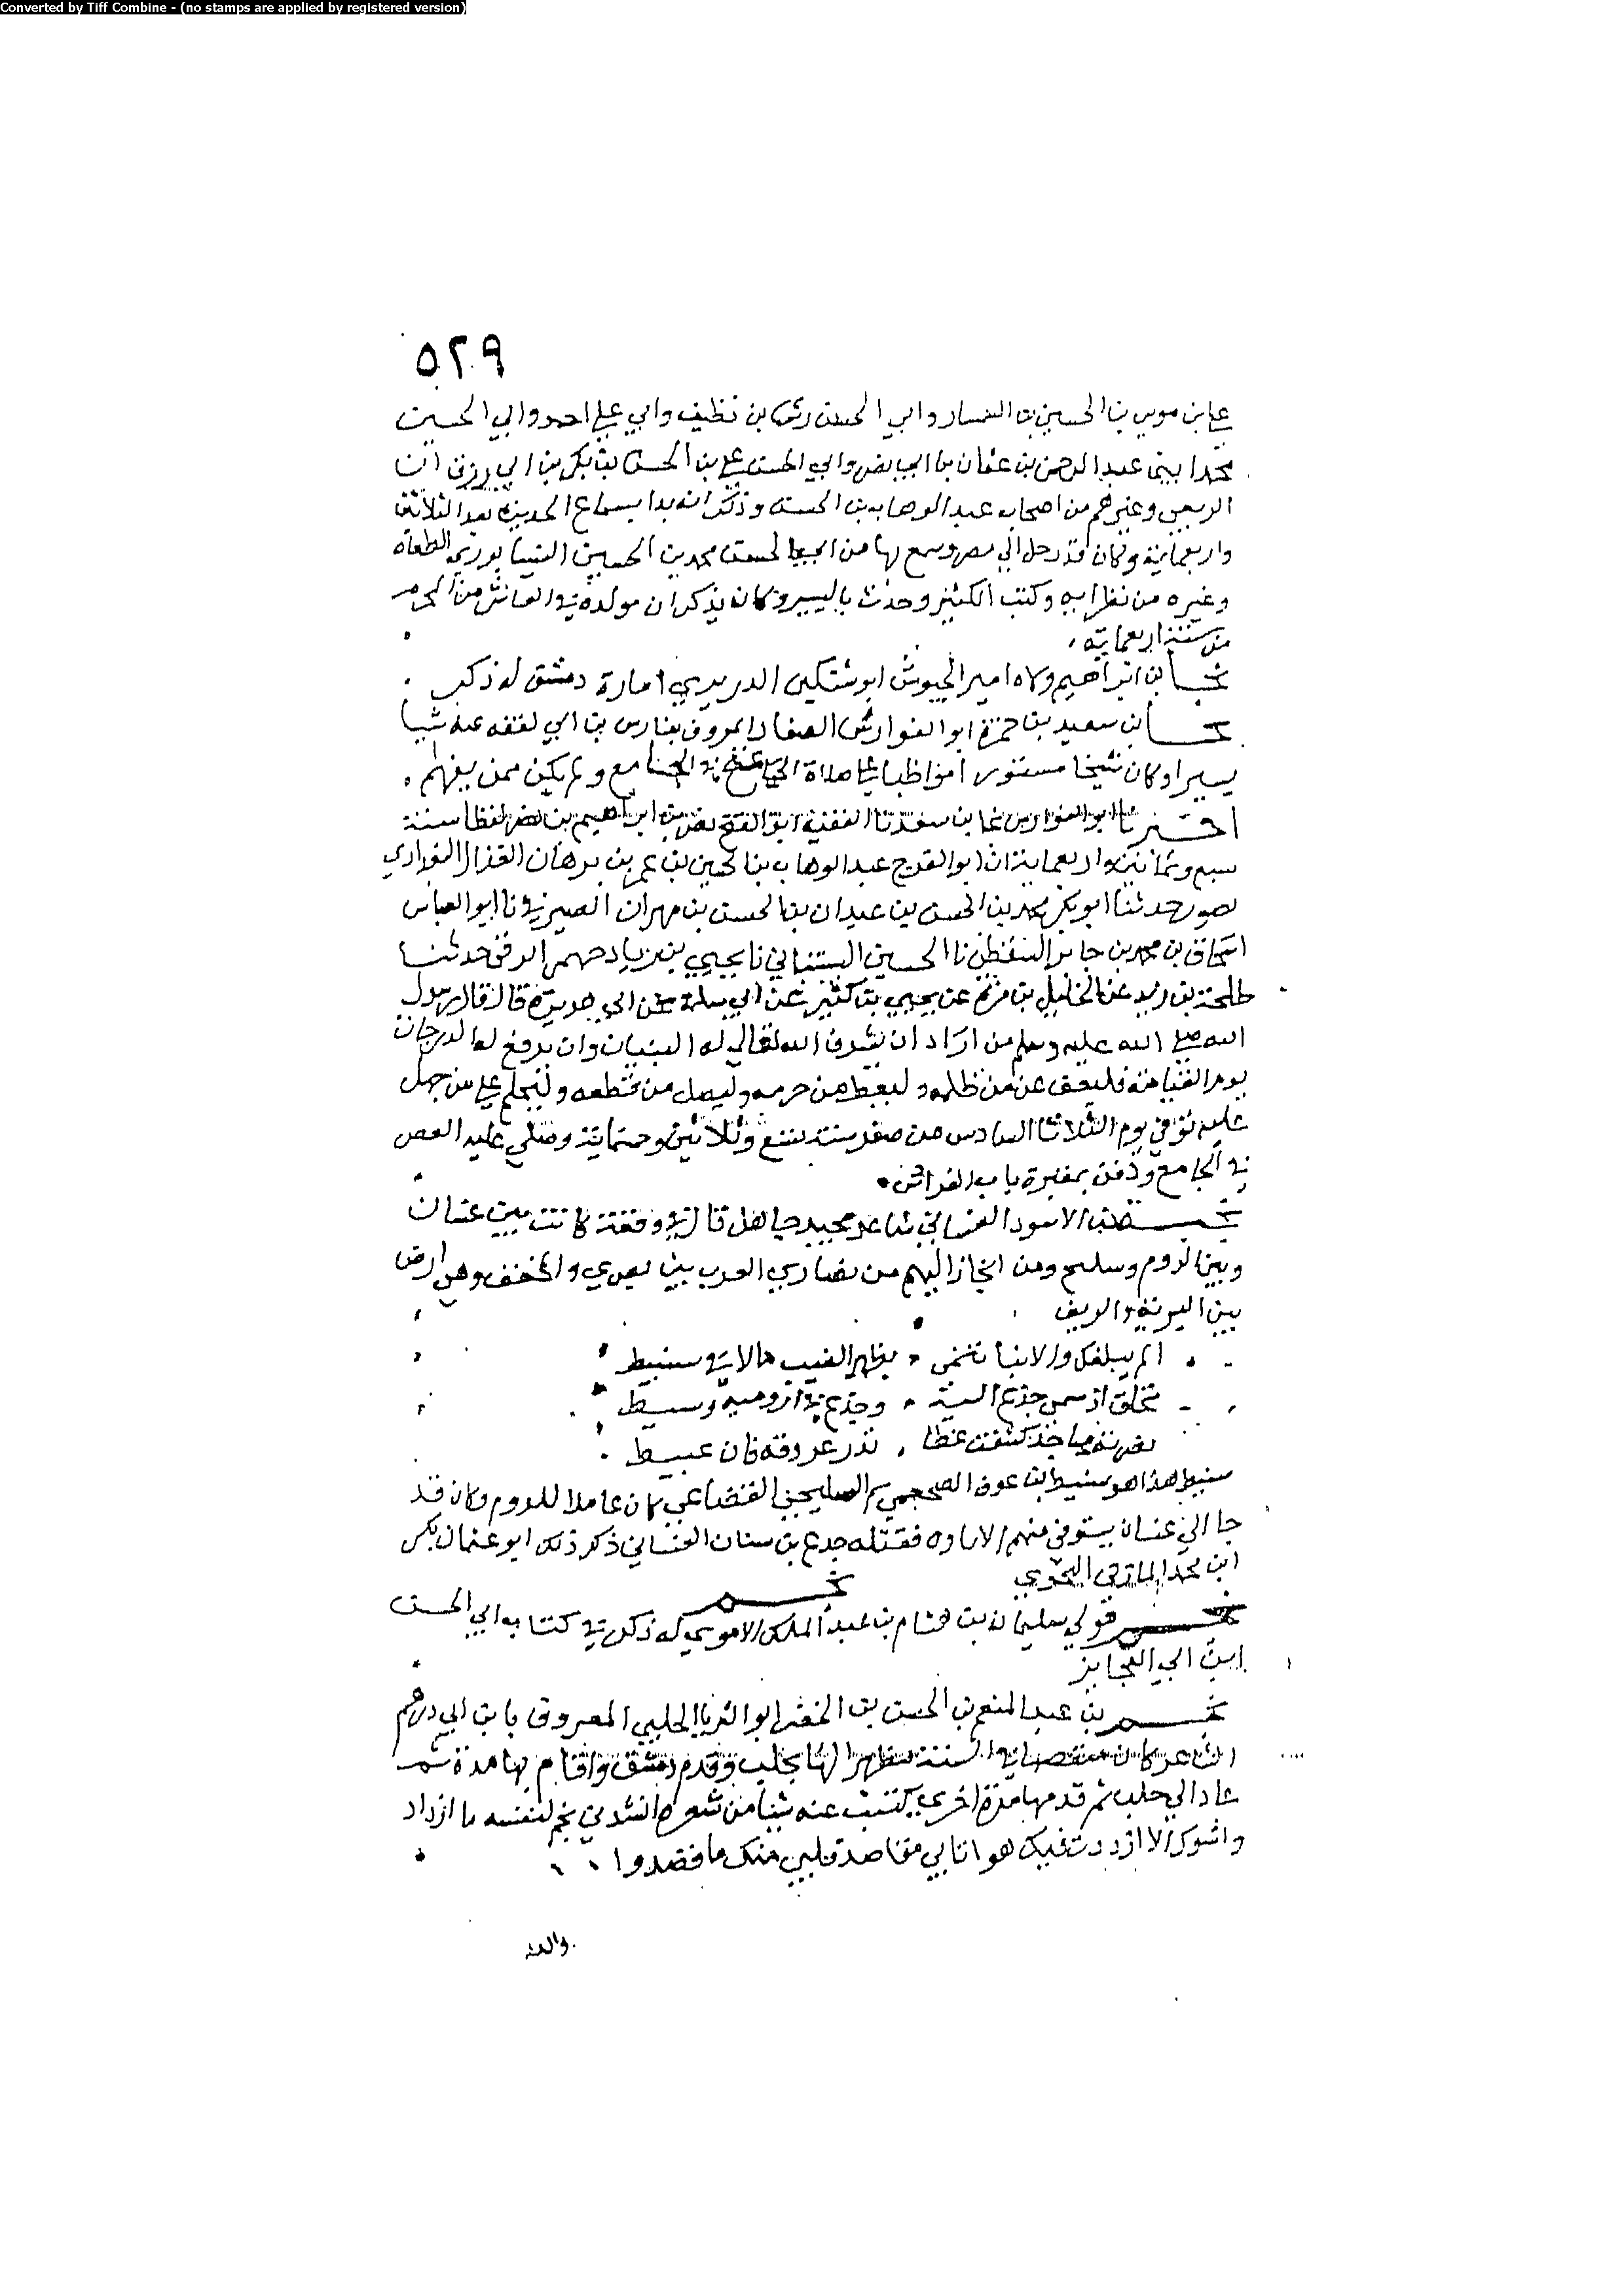 Converted by Tiff Combine - (no stamps are applied by registered version)
٥٢٩
علي بن موسى بن الحسين بن السمسار وابي الحسن رشا بن نظيف وابي علي احمد وابي الحسين
محمد ابني عبد الرحمن بن عثمان بن ابي نصر وابي الحسن علي بن الحسن بن
الربعي وغيرهم من اصحاب عبد الوهاب بن الحسن وذكر انه بدا بسماع الحديث بعد الثلاثين
واربعماية وكان قد رحل الي مصر وسمع بها من ابي الحسن محمد بن الحسين النيسابوري الطعان
وغيره من نظرايه وكتب الكثير وحدث باليسير وكان يذكر ان مولده في العاشر من المحرم
من سنة اربعماية
نجا بن ابراهيم ولاه امير الجيوش انوشتكين الدربري امارة دمشق له ذكر
نجا بن سعيد بن حمزة ابو الفوارس الصفار المعروف بفارس بن ابي لقمه عنه شيا
يسيرا وكان شيخا مستورا مواظبا علي صلاة في الجامع ولم يكن ممن يفهم
اخبرنا ابو الفوارس نجا بن سعد نا الفقيه ابو الفتح نصر بن ابراهيم بن نصر لفظا سنة
سبع وثمانين واربعماية انا ابو الفرج عبد الوهاب بن الحسين بن عمر بن برهان الغزال البغدادي
بصور حدثنا ابو بكر محمد بن الحسن بن عبدان بن الحسن بن مهران الصيرفي نا ابو العباس
اسحاق بن محمد بن السقطي نا الحسين نا يحيي بن زياد الرقي حدثنا
طلحة بن زيد عن الخليل بن مرة عن يحيي بن كثير عن ابي سلمة عن ابي هريرة قال قال رسول
الله صلي الله عليه وسلم من اراد ان يشرف الله تعالي له البنيان وان يرفع له الدرجات
يوم القيامة فليعف عن من ظلمه وليعط من حرمه وليصل من قطعه وليحلم علي من جهل
عليه توفي يوم الثلاثا السادس من صفر سنة تسع وثلاثين وخمسماية وصلي عليه العصر
في الجامع ودفن بمقبرة باب الفراديس
الاسود الغساني شاعر مجيد جاهلي قال في وقعة كانت بين غسان
وبين الروم وسليح ومن انحاز اليهم من نصاري العرب بين بصري والمخفف وهي ارض
بين البرية والريف
الم يبلغك والانبا تنمي بظهر الغيب ما لاقي سبيط
اذ سمي جذع وجذع في ارومه وسيط
كشفت غطا تدر عروقه قان عبيط
سبيط هذا هو سبيط بن عوف الضجعمي السليحي القضاعي كان عاملا للروم وكان قد
جا الي غسان يستوفي منهم الاتاوه فقتله جذع بن سنان الغساني ذكر ذلك ابو عثمان بكر
ابن محمد المازني النحوي
نجم
نجم مولي سليمان بن هشام بن عبد الملك الاموي له ذكر في كتاب ابي الحسن
ابن ابي العجايز
نجم بن عبد المنعم بن الحسن بن الخضر ابو الثريا الحلبي المعروف بابن ابي درهم
الشاعر كان السنة متظهرا لها بحلب وقدم دمشق واقام بها مدة ثم
عاد الي حلب ثم قدمها مرة اخري كتبت عنه شيا من شعره انشدني نجم لنفسه ما ازداد
واشوك الا ازددت فيك هوا نا بي مقاصد قلبي منك ما قصدوا
والله